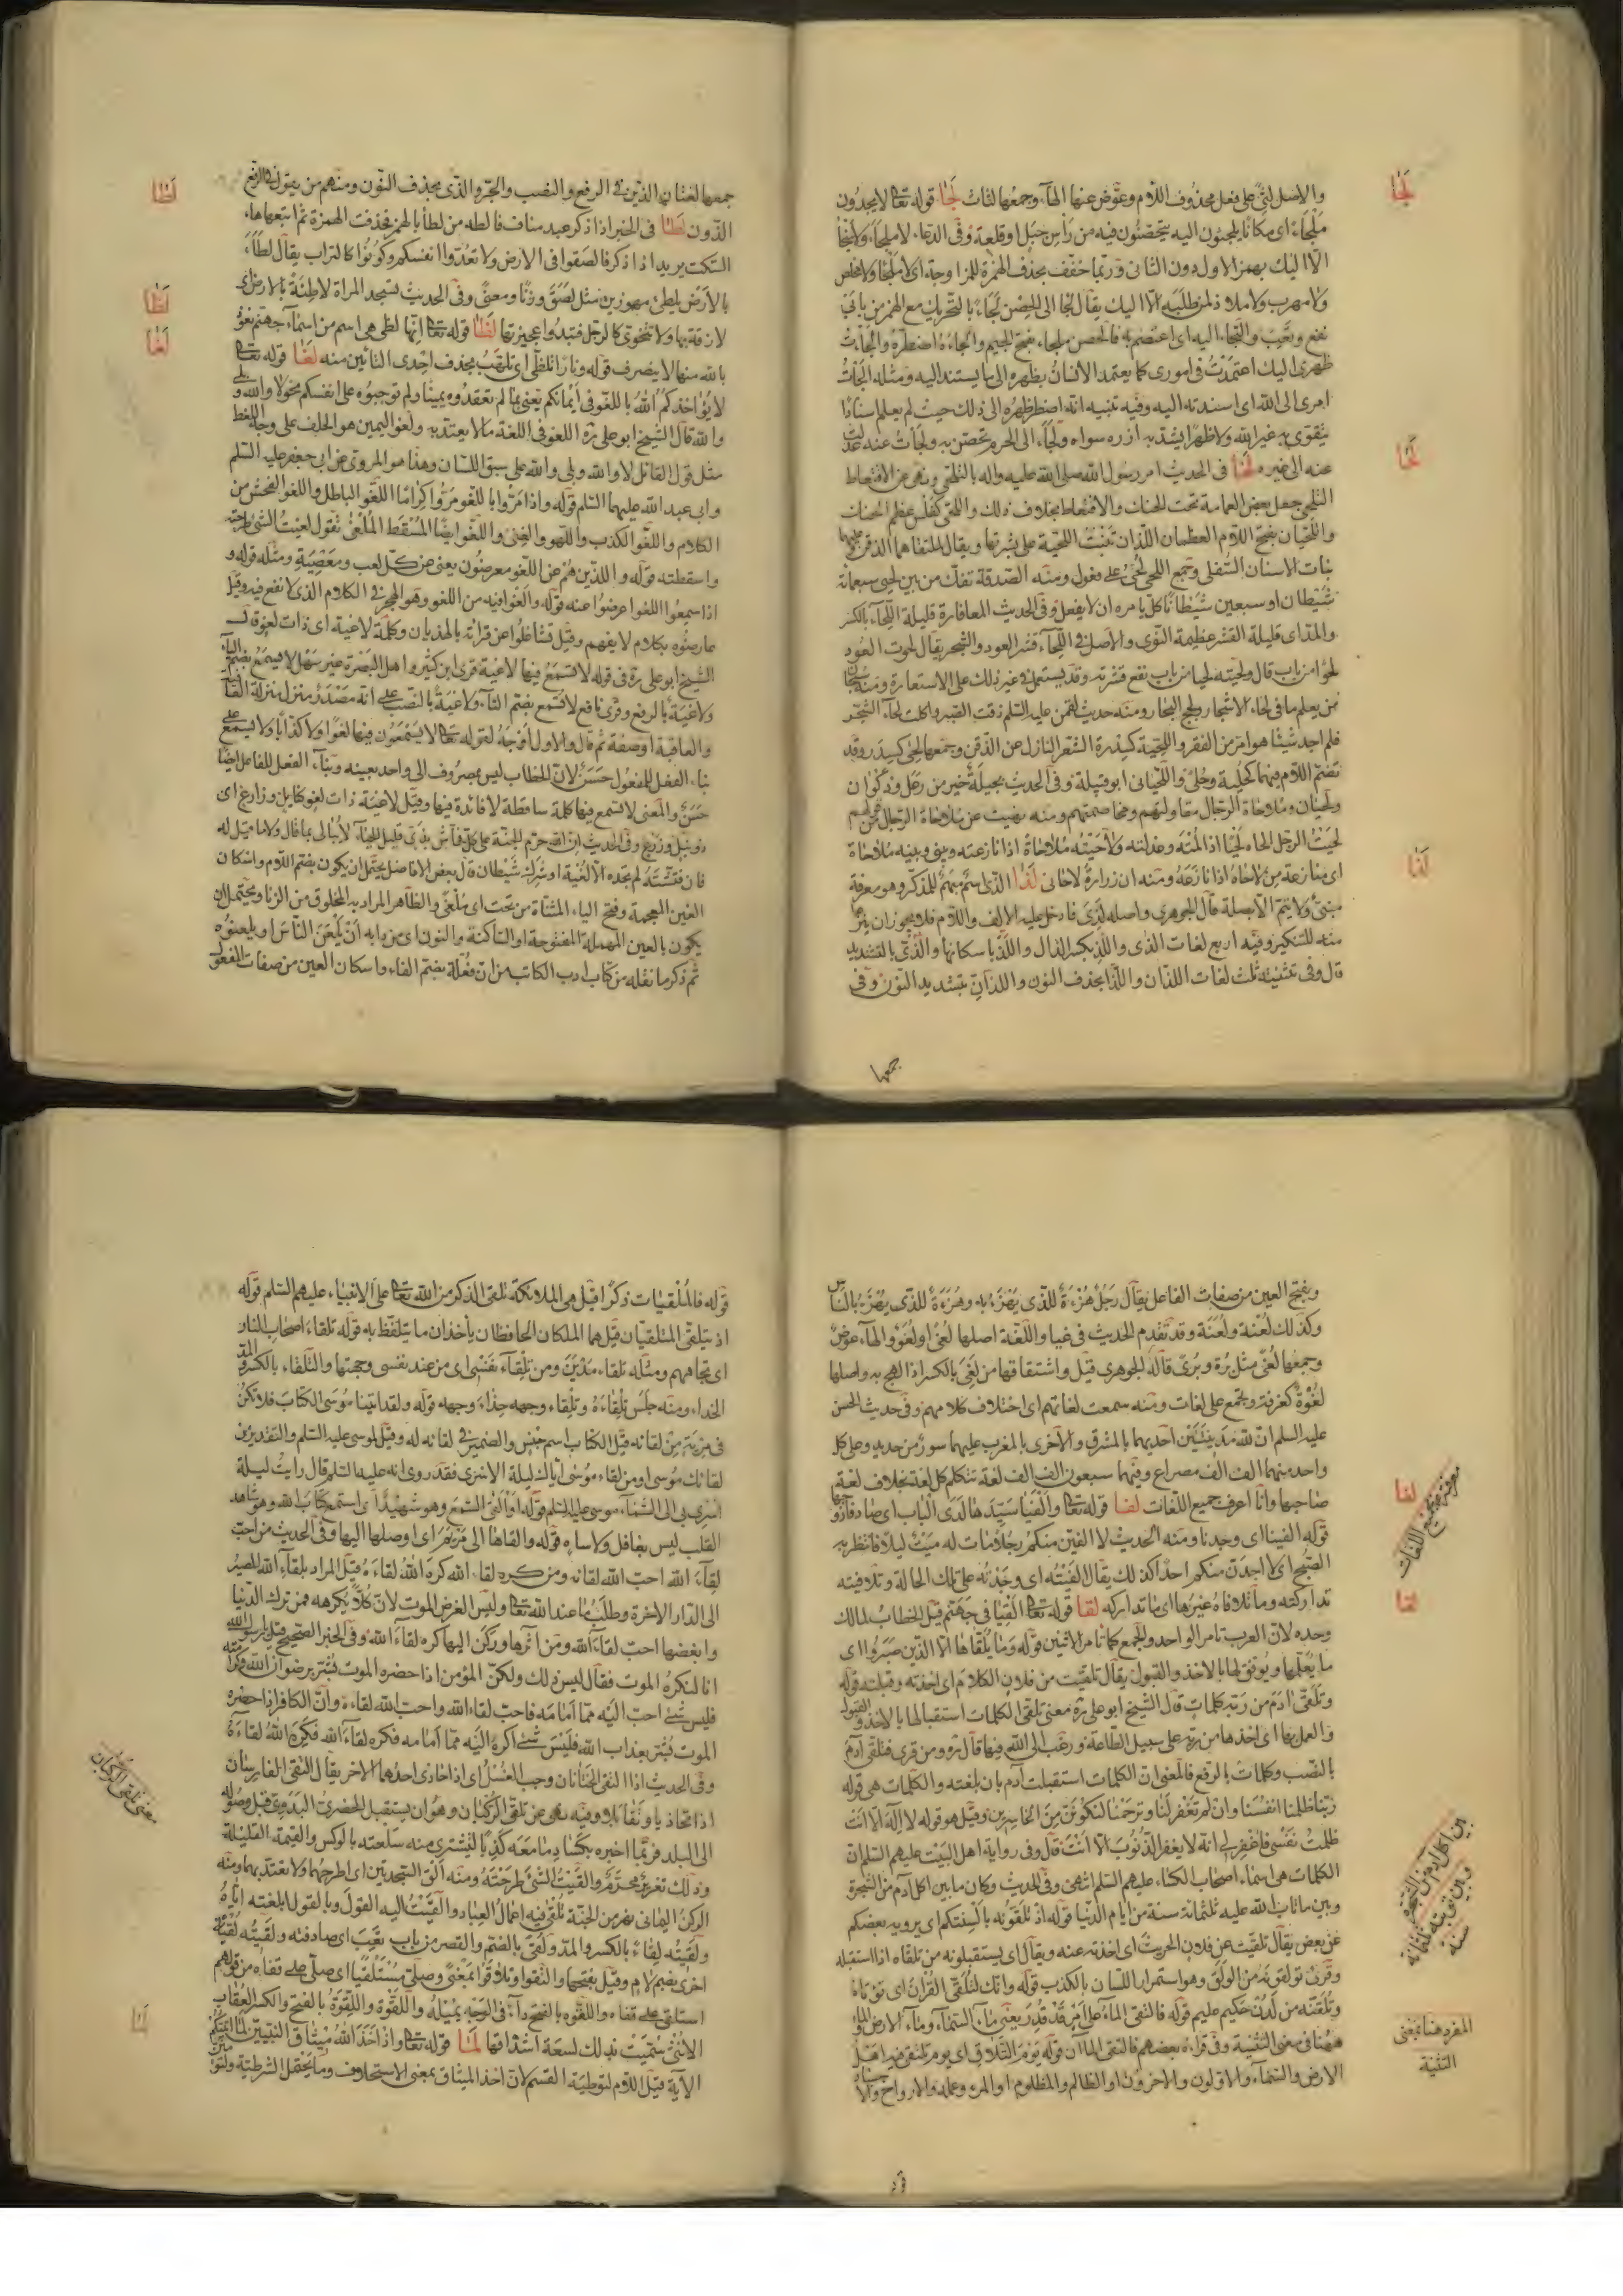 والاصل لثى على فعل محذوف اللام وعوض عنها الهاء وجمعها لثات لجا قوله تعا لا يجدون
ملجاء اى مكانا يلجئون اليه يتحصنون فيه من راس جبل او قلعة وفى الدعا لا ملجأ ولا منجأ
الا اليك بهمز الاول دون الثانى وربما خفف بحذف الهمزة للمزاوجة اى لا ملجأ ولا مخلص
ولا مهرب ولا ملاذ لمن طلبته الا اليك يقال لجا الى الحصن لجاء بالتحريك مع الهمز من بابى
نفع وتعب والتجاء اليه اى اعتصم به فالحصن ملجاء بفتح الجيم والجاءه اضطره والجأت
ظهرى اليك اعتمدت فى امورى كما يعتمد الانسان بظهره الى ما يستند اليه ومثله الجأت
امرى الى الله اى اسندته اليه وفيه تنبيه انه اضطر ظهره الى ذلك حيث لم يعلم اسنادا
يتقوى به غير الله ولا ظهرا يشد به ازره سواه ولجاء الى الحرم تحصن به ولجأت عنه عدلت
عنه الى غيره لحا فى الحديث امر رسول الله صلى الله عليه واله بالتلحى ونهى عن الاقتعاط
التلحى جعل بعض العمامة تحت الحنك والاقتعاط بخلاف ذلك واللحى كفلس عظم الحنك
واللحيان بفتح اللام العظمان اللذان تنبت اللحية على بشرتها ويقال لملتقاهما الذقن وعليهما
نبات الاسنان السفلى وجمع اللحى لحى على فعول ومنه الصدقة تفك من بين لحيى سبعمائة
شيطان او سبعين شيطانا كل يامره ان لا يفعل وفى الحديث المعافارة قليلة اللحاء بالكسر
والمد اى قليلة القشر عظيمة النوى والاصل فى اللحاء قشر العود والشجر يقال لحوت العود
لحوا من باب قال ولحيته لحيا من باب نفع قشرته وقد يستعمل فى غير ذلك على الاستعارة ومنه
من يعلم ما فى لحاء الاشجار ولجج البحار ومنه حديث لقمن عليه السلم ذقت الصبر واكلت لحاء الشجر
فلم اجد شيئا هو امر من الفقر واللحية كسدرة الشعر النازل عن الذقن وجمعها لحى كسدر وقد
تضم اللام فيهما كحلية وحلى واللحيانى ابو قبيلة وفى الحديث بجيلة خير من رعل وذكوان
ولحيان وملاحاة الرجال مقاولتهم ومخاصمتهم ومنه نهيت عن ملاحاة الرجال
لحيت الرجل الحاه لحيا اذا لمته وعذلته ولاحيته ملاحاة اذا نازعته وبينى وبينه ملاحاة
اى منازعة من لاحاه اذا نازعه ومنه ان زرارة لاحانى لذا الذى اسم مبهم للمذكر وهو معرفة
مبنى ولا يتم الا بصلة قال الجوهرى واصله لذى فادخل عليه الالف واللام فلا يجوز ان ينزعا
منه للتنكير وفيه اربع لغات الذى واللذ بكسر الذال واللذ باسكانها والذى بالتشديد
قال وفى تثنيته ثلث لغات اللذان واللذا بحذف النون واللذان بتشديد النون وفى
جمعها
لجا
لحا
لذا
جمعها لغتان الذين فى الرفع والنصب والجر والذى بحذف النون ومنهم من يقول فى الرفع
اللذون لطا فى الخبر اذا ذكر عبد مناف فالطه من لطأ بالهمز فحذفت الهمزة ثم اتبعها هاء
السكت يريد اذا ذكر فالصقوا فى الارض ولا تعدوا انفسكم وكونوا كالتراب يقال لطأ
بالارض يلطئ مهموزين مثل لصق وزنا ومعنى وفى الحديث تسجد المراة لاطئة بالارض اى
لازقة بها ولا تتخوى كالرجل فتبدوا عجيزتها لظا قوله تعا انها لظى هى اسم من اسماء جهنم نعوذ
بالله منها لا ينصرف قوله ونارا تلظى اى تلهب بحذف احدى التائين منه لغا قوله تعا
لا يؤاخذكم الله باللغو فى ايمانكم يعنى بما لم تعقدوه يمينا ولم توجبوه على انفسكم نحو لا والله وبلى
والله قال الشيخ ابو على ره اللغو فى اللغة ما لا يعتد به ولغو اليمين هو الحلف على وجه الغلط
مثل قول القائل لا والله وبلى والله على سبق اللسان وهذا هو المروى عن ابى جعفر عليه السلم
وابى عبد الله عليهما السلم قوله واذا مروا باللغو مروا كراما اللغو الباطل واللغو الفحش من
الكلام واللغو الكذب واللهو والغنى واللغو ايضا المسقط الملغى تقول لغيت الشئ طرحته
واسقطته قوله والذين هم عن اللغو معرضون يعنى عن كل لعب ومعصية ومثله قوله و
اذا سمعوا اللغو اعرضوا عنه قوله والغوا فيه من اللغو وهو الهجر فى الكلام الذى لا نفع فيه وقيل
عارضوه بكلام لا يفهم وقيل تشاغلوا عن قرائته بالهذيان وكلمة لاغية اى ذات لغو قال
الشيخ ابو على ره فى قوله لا تسمع فيها لاغية قرئ ابن كثير واهل البصرة غير سهل لا يسمع بضم الياء
ولاغية بالرفع وقرئ نافع لا تسمع بضم التاء ولاغية بالنصب على انه مصدر بمنزلة العافية
والعاقبة او صفة ثم قال والاول اوجه لقوله تعا لا يسمعون فيها لغوا ولا كذابا ولا تسمع على
بناء الفعل للمفعول حسن لان الخطاب ليس بمصروف الى واحد بعينه وبناء الفعل للفاعل ايضا
حسن والمعنى لا تسمع فيها كلمة ساقطة لا فائدة فيها وقيل لاغية ذات لغو كنابل وزارع اى
ذو نبل وزرع وفى الحديث ان الله حرم الجنة على كل فحاش بذى قليل الحياء لا يبالى بما قال ولا ما قيل له
فان فتشته لم تجده الا لغية او شرك شيطان قال بعض الافاضل يحتمل ان يكون بضم اللام واسكان
الغين المعجمة وفتح الياء المثناة من تحت اى ملغى والظاهر المراد به المخلوق من الزنا ويحتمل ان
يكون بالعين المهملة المفتوحة او الساكنة والنون اى من دابه ان يلعن الناس او يلعنوه
ثم ذكر ما نقله من كتاب ادب الكاتب من ان فعلة بضم الفاء واسكان العين من صفات المفعول
لطا
لظا
لغا
وبفتح العين من صفات الفاعل يقال رجل هزءة للذى يهزء به وهزءة للذى يهزء بالناس
وكذلك لعنة ولعنة وقد تقدم الحديث فى غيا واللغة اصلها لغى او لغو والهاء عوض
وجمعها لغى مثل برة وبرى قاله الجوهرى قيل واشتقاقها من لغى بالكسر اذا لهج به واصلها
لغوة كغرفة وتجمع على لغات ومنه سمعت لغاتهم اى اختلاف كلامهم وفى حديث الحسن
عليه السلم ان لله مدينتين احديهما بالمشرق والاخرى بالمغرب عليهما سور من حديد وعلى كل
واحد منهما الف الف مصراع وفيهما سبعون الف الف لغة تتكلم كل لغة بخلاف لغة
صاحبها وانا اعرف جميع اللغات لفا قوله تعا والفيا سيدها لدى الباب اى صادفا زوجها
قوله الفينا اى وجدنا ومنه الحديث لا الفين منكم رجلا مات له ميت ليلا فانتظر به
الصبح اى لا اجدن منكم احدا كذلك يقال الفيته اى وجدته على تلك الحالة وتلافيته
تداركته وما تلافاه غيرها اى ما تداركه لقا قوله تعا القيا فى جهنم قيل الخطاب لمالك
وحده لان العرب تامر الواحد والجمع كما تامر الاثنين قوله وما يلقاها الا الذين صبروا اى
ما يعلمها ويوفق لها بالاخذ والقبول يقال تلقيت من فلان الكلام اى اخذته وقبلته قوله
وتلقى ادم من ربه كلمات قال الشيخ ابو على ره معنى تلقى الكلمات استقبالها بالاخذ والقبول
والعمل بها اى اخذها من ربه على سبيل الطاعة ورغب الى الله فيها قال ره ومن قرئ فتلقى ادم
بالنصب وكلمات بالرفع فالمعنى ان الكلمات استقبلت آدم بان بلغته والكلمات هى قوله
ربنا ظلمنا انفسنا وان لم تغفر لنا وترحمنا لنكونن من الخاسرين وقيل هو قوله لا اله الا انت
ظلمت نفسى فاغفر لى انه لا يغفر الذنوب الا انت قال وفى رواية اهل البيت عليهم السلم ان
الكلمات هى اسماء اصحاب الكساء عليهم السلم انتهى وفى الحديث وكان ما بين اكل آدم من الشجرة
وبين ما تاب الله عليه ثلثمائة سنة من ايام الدنيا قوله اذ تلقونه بالسنتكم اى يرويه بعضكم
عن بعض يقال تلقيت عن فلان الحديث اى اخذته عنه ويقال اى يستقبلونه من تلقاه اذا استقبله
وقرئ تولقونه من الولق وهو استمرار اللسان بالكذب قوله وانك لتلقى القرآن اى تؤتاه
وتلقنه من لدن حكيم عليم قوله فالتقى الماء على امر قد قدر يعنى ماء السماء وماء الارض والماء
ههنا فى معنى التثنية وفى قراءة بعضهم فالتقى الماآن قوله يوم التلاق اى يوم تلتقى فيه اهل
الارض والسماء والاولون والاخرون او الظالم والمظلوم او المرء وعمله والارواح والاجساد
لفا
معرفة جميع اللغات
لقا
بين اكل آدم من الشجرة
وبين توبته ثلثمائة
سنة
المفرد هنا بمعنى
التثنية
قوله فالملقيات ذكرا قيل هى الملائكة تلقى الذكر من الله تعا على الانبياء عليهم السلم قوله
اذ يتلقى المتلقيان قيل هما الملكان الحافظان ياخذان ما يتلفظ به قوله تلقاء اصحاب النار
اى تجاههم ومثله تلقاء مدين ومن تلقاء نفسى اى من عند نفسى وجهتها والتلقاء بالكسر والمد
الحذاء ومنه جلس تلقاءه وتلقاء وجهه حذاء وجهه قوله ولقد اتينا موسى الكتاب فلا تكن
فى مرية من لقائه قيل الكتاب اسم جنس والضمير فى لقائه له وقيل لموسى عليه السلم والتقدير من
لقائك موسى او من لقاء موسى اياك ليلة الاسرى فقد روى انه عليه السلم قال رايت ليلة
اسرى بى الى السماء موسى عليه السلم قوله او القى السمع وهو شهيد اى استمع كتاب الله وهو شاهد
القلب ليس بغافل ولا ساه قوله والقاها الى مريم اى اوصلها اليها وفى الحديث من احب
لقاء الله احب الله لقائه ومن كره لقاء الله كره الله لقاءه قيل المراد بلقاء الله المصير
الى الدار الاخرة وطلب ما عند الله تعا وليس الغرض الموت لان كلا يكرهه فمن ترك الدنيا
وابغضها احب لقاء الله ومن آثرها وركن اليها كره لقاء الله وفى الخبر الصحيح قيل لرسول الله
انا لنكره الموت فقال ليس ذلك ولكن المؤمن اذا حضره الموت بشر برضوان الله
فليس شئ احب اليه مما امامه فاحب لقاء الله واحب الله لقاءه وان الكافر اذا حضره
الموت بشر بعذاب الله فليس شئ اكره اليه مما امامه فكره لقاء الله فكره الله لقاءه
وفى الحديث اذا التقى الختانان وجب الغسل اى اذا حاذى احدهما الاخر يقال التقى الفارسان
اذا تحاذيا وتقابلا وفيه نهى عن تلقى الركبان وهو ان يستقبل الحضرى البدوى قبل وصوله
الى البلد فربما اخبره بكساد ما معه كذبا ليشترى منه سلعته بالوكس والقيمة القليلة
وذلك تغرير محرم والقيت الشئ طرحته ومنه الق السجدتين اى اطرحهما ولا تعتد بهما ومنه
الركن اليمانى نهر من الجنة تلقى فيه اعمال العباد والقيت اليه القول وبالقول ابلغته اياه
ولقيته لقاء بالكسر والمد ولقى بالضم والقصر من باب تعب اى صادفته ولقيته لقية
اخرى بضم لام وقيل بفتحها والتقوا وتلاقوا بمعنى وصلى مستلقيا اى صلى على قفاه من قولهم
استلقى على قفاه واللقوه بالفتح داء فى الوجه يميله واللقوة واللقوة بالفتح والكسر العقاب
الانثى سميت بذلك لسعة اشداقها لما قوله تعا واذ اخذ الله ميثاق النبيين لما اتيتكم
الآية قيل اللام لتوطية القسم لان اخذ الميثاق بمعنى الاستحلاف وما يحتمل الشرطية
معنى تلقى الركبان
لما